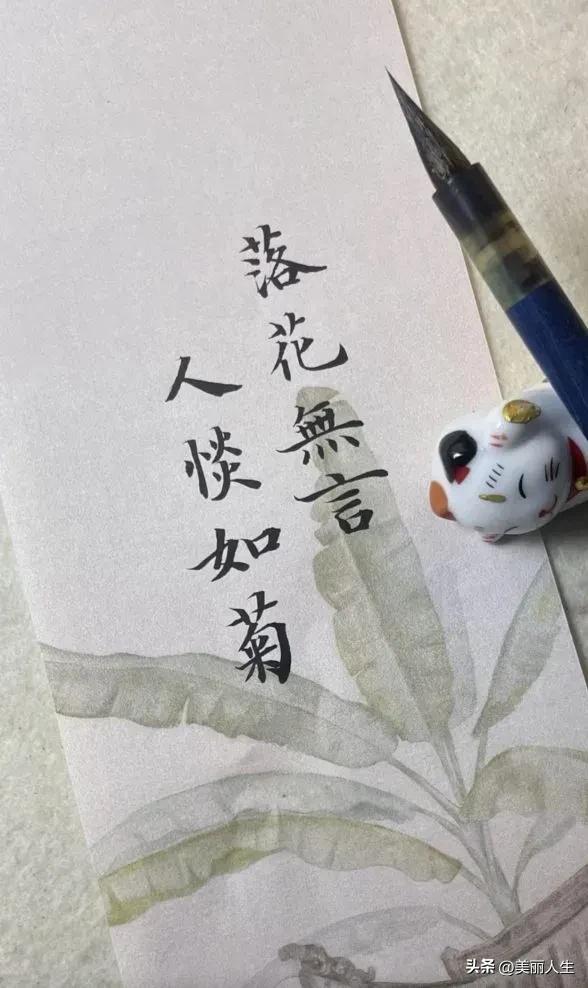 落花無言
人惔如菊
头条 @美丽人生